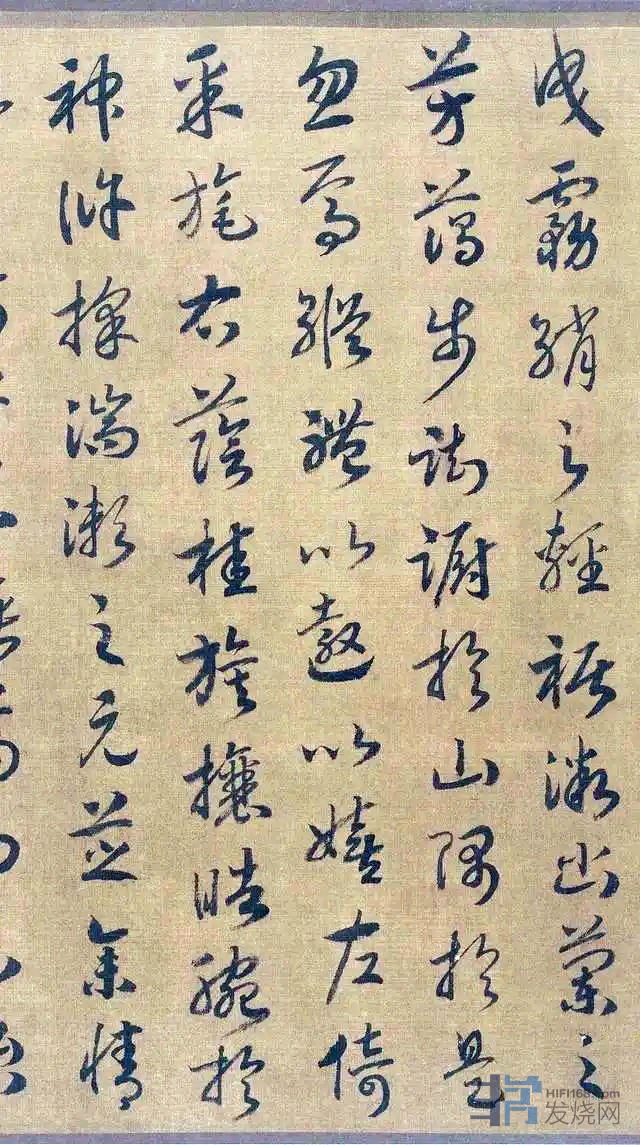 曳霧綃之輕裾微幽蘭之
芳藹步踟躕於山隅於是
忽焉縱體以遨以嬉左倚
采旄右蔭桂旗攘皓腕於
神滸採湍瀨之元芝余情
HIFI168.com
发烧网